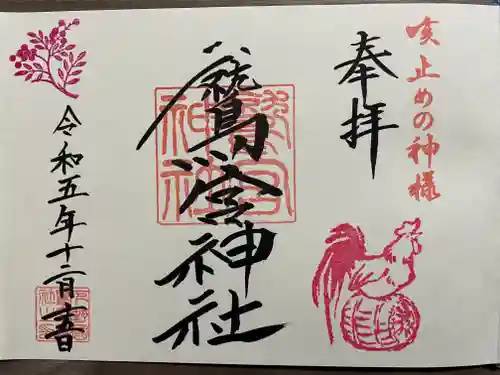 咳止めの神様
奉拝
鷲宮神社
鷲宮
神社
令和五年十二月吉日